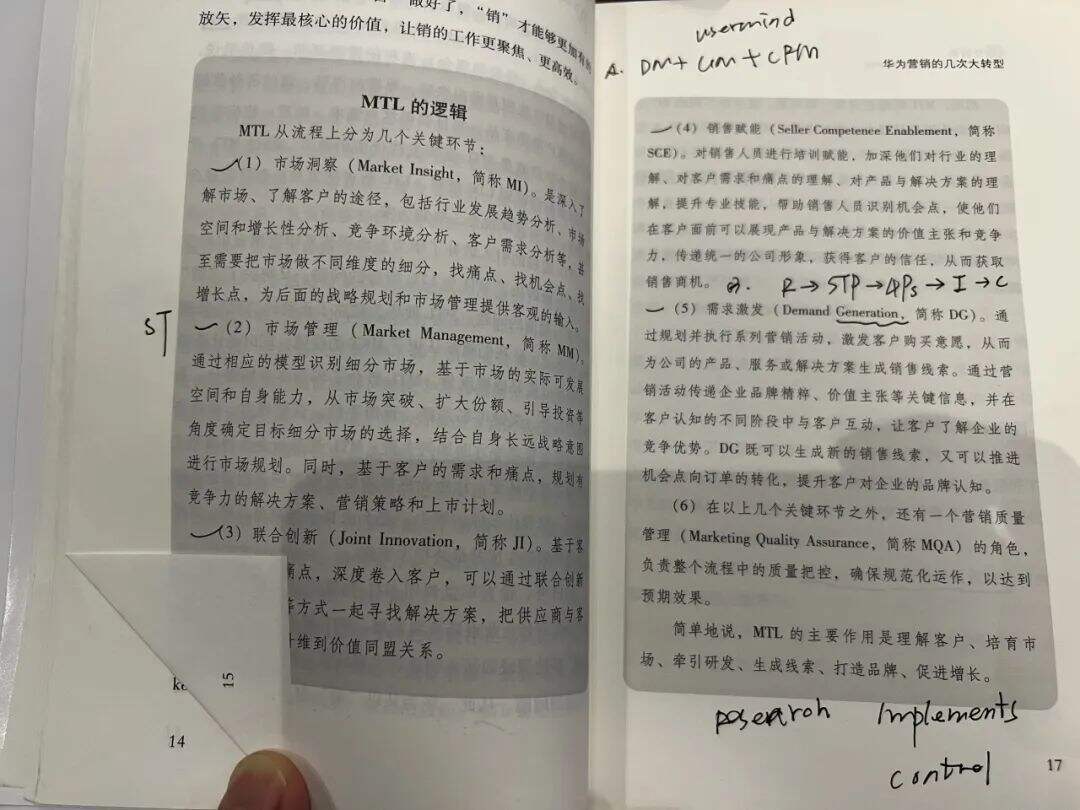 做好了，“销”才能够更加有的
放矢，发挥最核心的价值，让销的工作更聚焦、更高效。
MTL 的逻辑
MTL 从流程上分为几个关键环节：
（1）市场洞察（Market Insight，简称 MI）。是深入了
解市场、了解客户的途径，包括行业发展趋势分析、市场
空间和增长性分析、竞争环境分析、客户需求分析等，甚
至需要把市场做不同维度的细分，找痛点、找机会点、找
增长点，为后面的战略规划和市场管理提供客观的输入。
ST
（2）市场管理（Market Management，简称 MM）。
通过相应的模型识别细分市场，基于市场的实际可发展
空间和自身能力，从市场突破、扩大份额、引导投资等
角度确定目标细分市场的选择，结合自身长远战略意图
进行市场规划。同时，基于客户的需求和痛点，规划有
竞争力的解决方案、营销策略和上市计划。
（3）联合创新（Joint Innovation，简称 JI）。基于客
痛点，深度卷入客户，可以通过联合创新
等方式一起寻找解决方案，把供应商与客
维到价值同盟关系。
15
14
usermind
A. DM+ UM+CPM
华为营销的几次大转型
（4）销售赋能（Seller Competence Enablement，简称
SCE）。对销售人员进行培训赋能，加深他们对行业的理
解、对客户需求和痛点的理解、对产品与解决方案的理
解，提升专业技能，帮助销售人员识别机会点，使他们
在客户面前可以展现产品与解决方案的价值主张和竞争
力，传递统一的公司形象，获得客户的信任，从而获取
销售商机。 R→STP→4Ps→I→C
（5）需求激发（Demand Generation，简称 DG）。通
过规划并执行系列营销活动，激发客户购买意愿，从而
为公司的产品、服务或解决方案生成销售线索。通过营
销活动传递企业品牌精粹、价值主张等关键信息，并在
客户认知的不同阶段中与客户互动，让客户了解企业的
竞争优势。DG 既可以生成新的销售线索，又可以推进
机会点向订单的转化，提升客户对企业的品牌认知。
（6）在以上几个关键环节之外，还有一个营销质量
管理（Marketing Quality Assurance，简称 MQA）的角色，
负责整个流程中的质量把控，确保规范化运作，以达到
预期效果。
简单地说，MTL 的主要作用是理解客户、培育市
场、牵引研发、生成线索、打造品牌、促进增长。
research implements
control
17